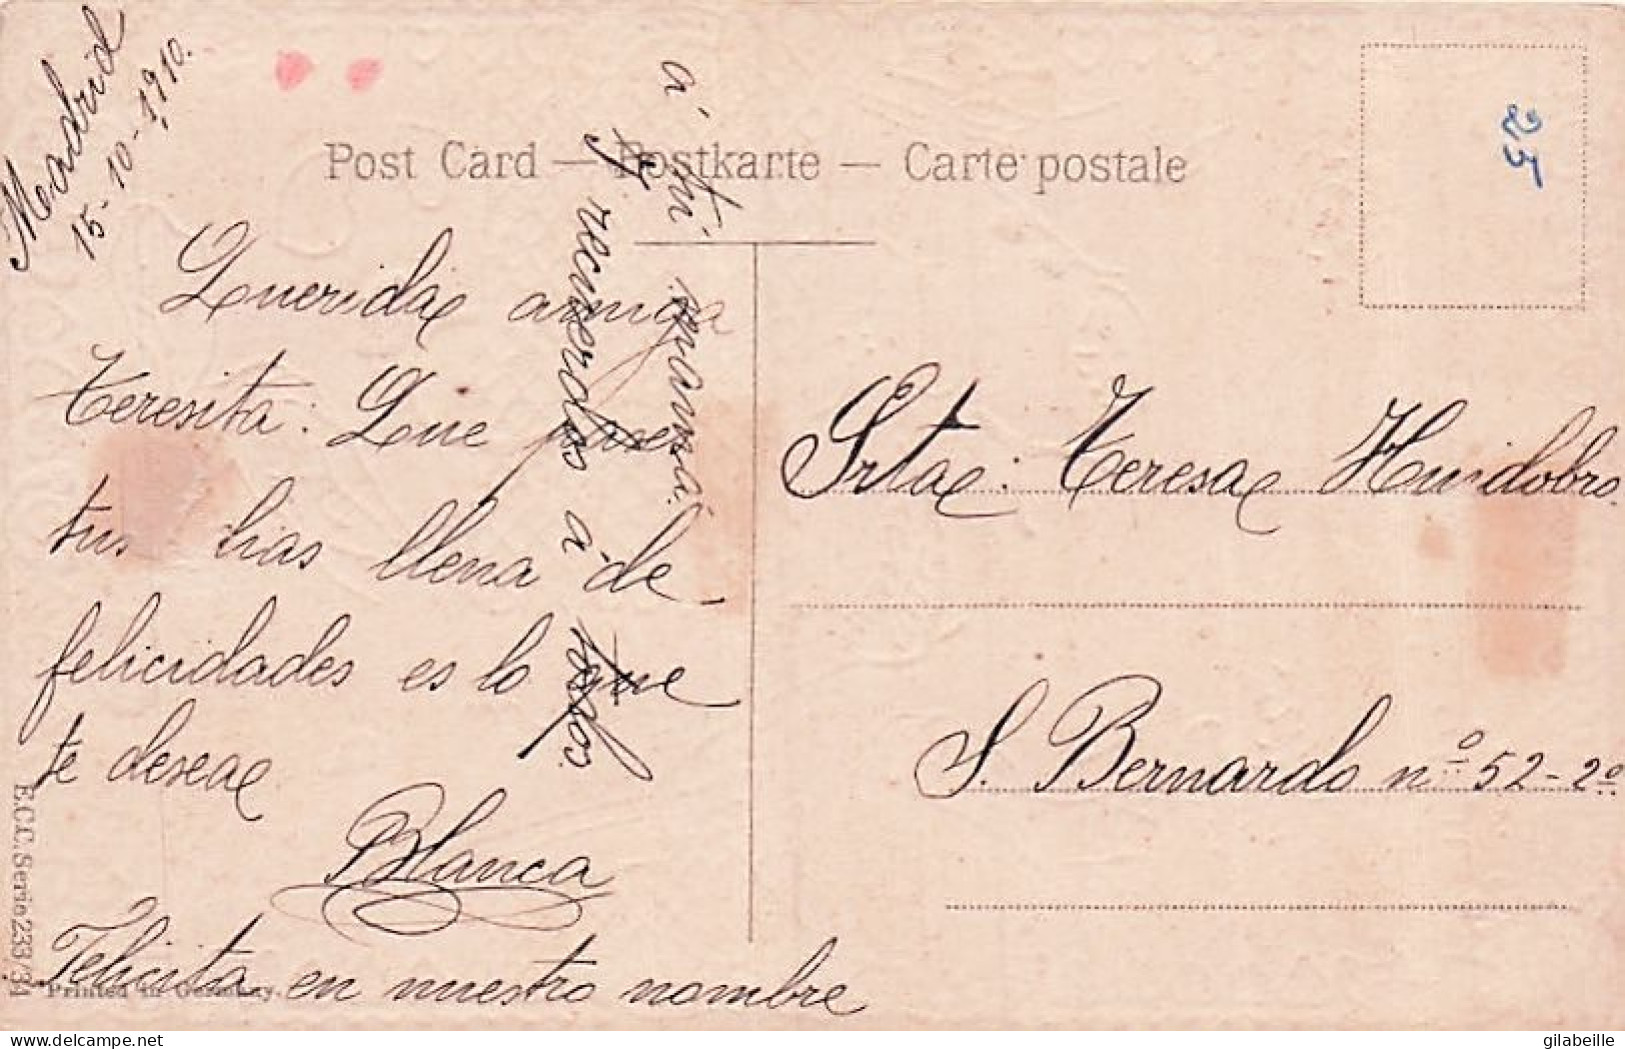 Madrid
15-10-1910.
Post Card — Postkarte — Carte postale
Querida amiga
Teresita: Que pases
tus dias llena de
felicidades es lo que
te desea
Blanca
Felicita en nuestro nombre
á tu mamá
y recuerdos á todos.
Srta: Teresa Huidobro
S. Bernardo nº 52-2º
25
E.C.C. Serie 233/34
Printed in Germany.
gilabeille
delcampe.net